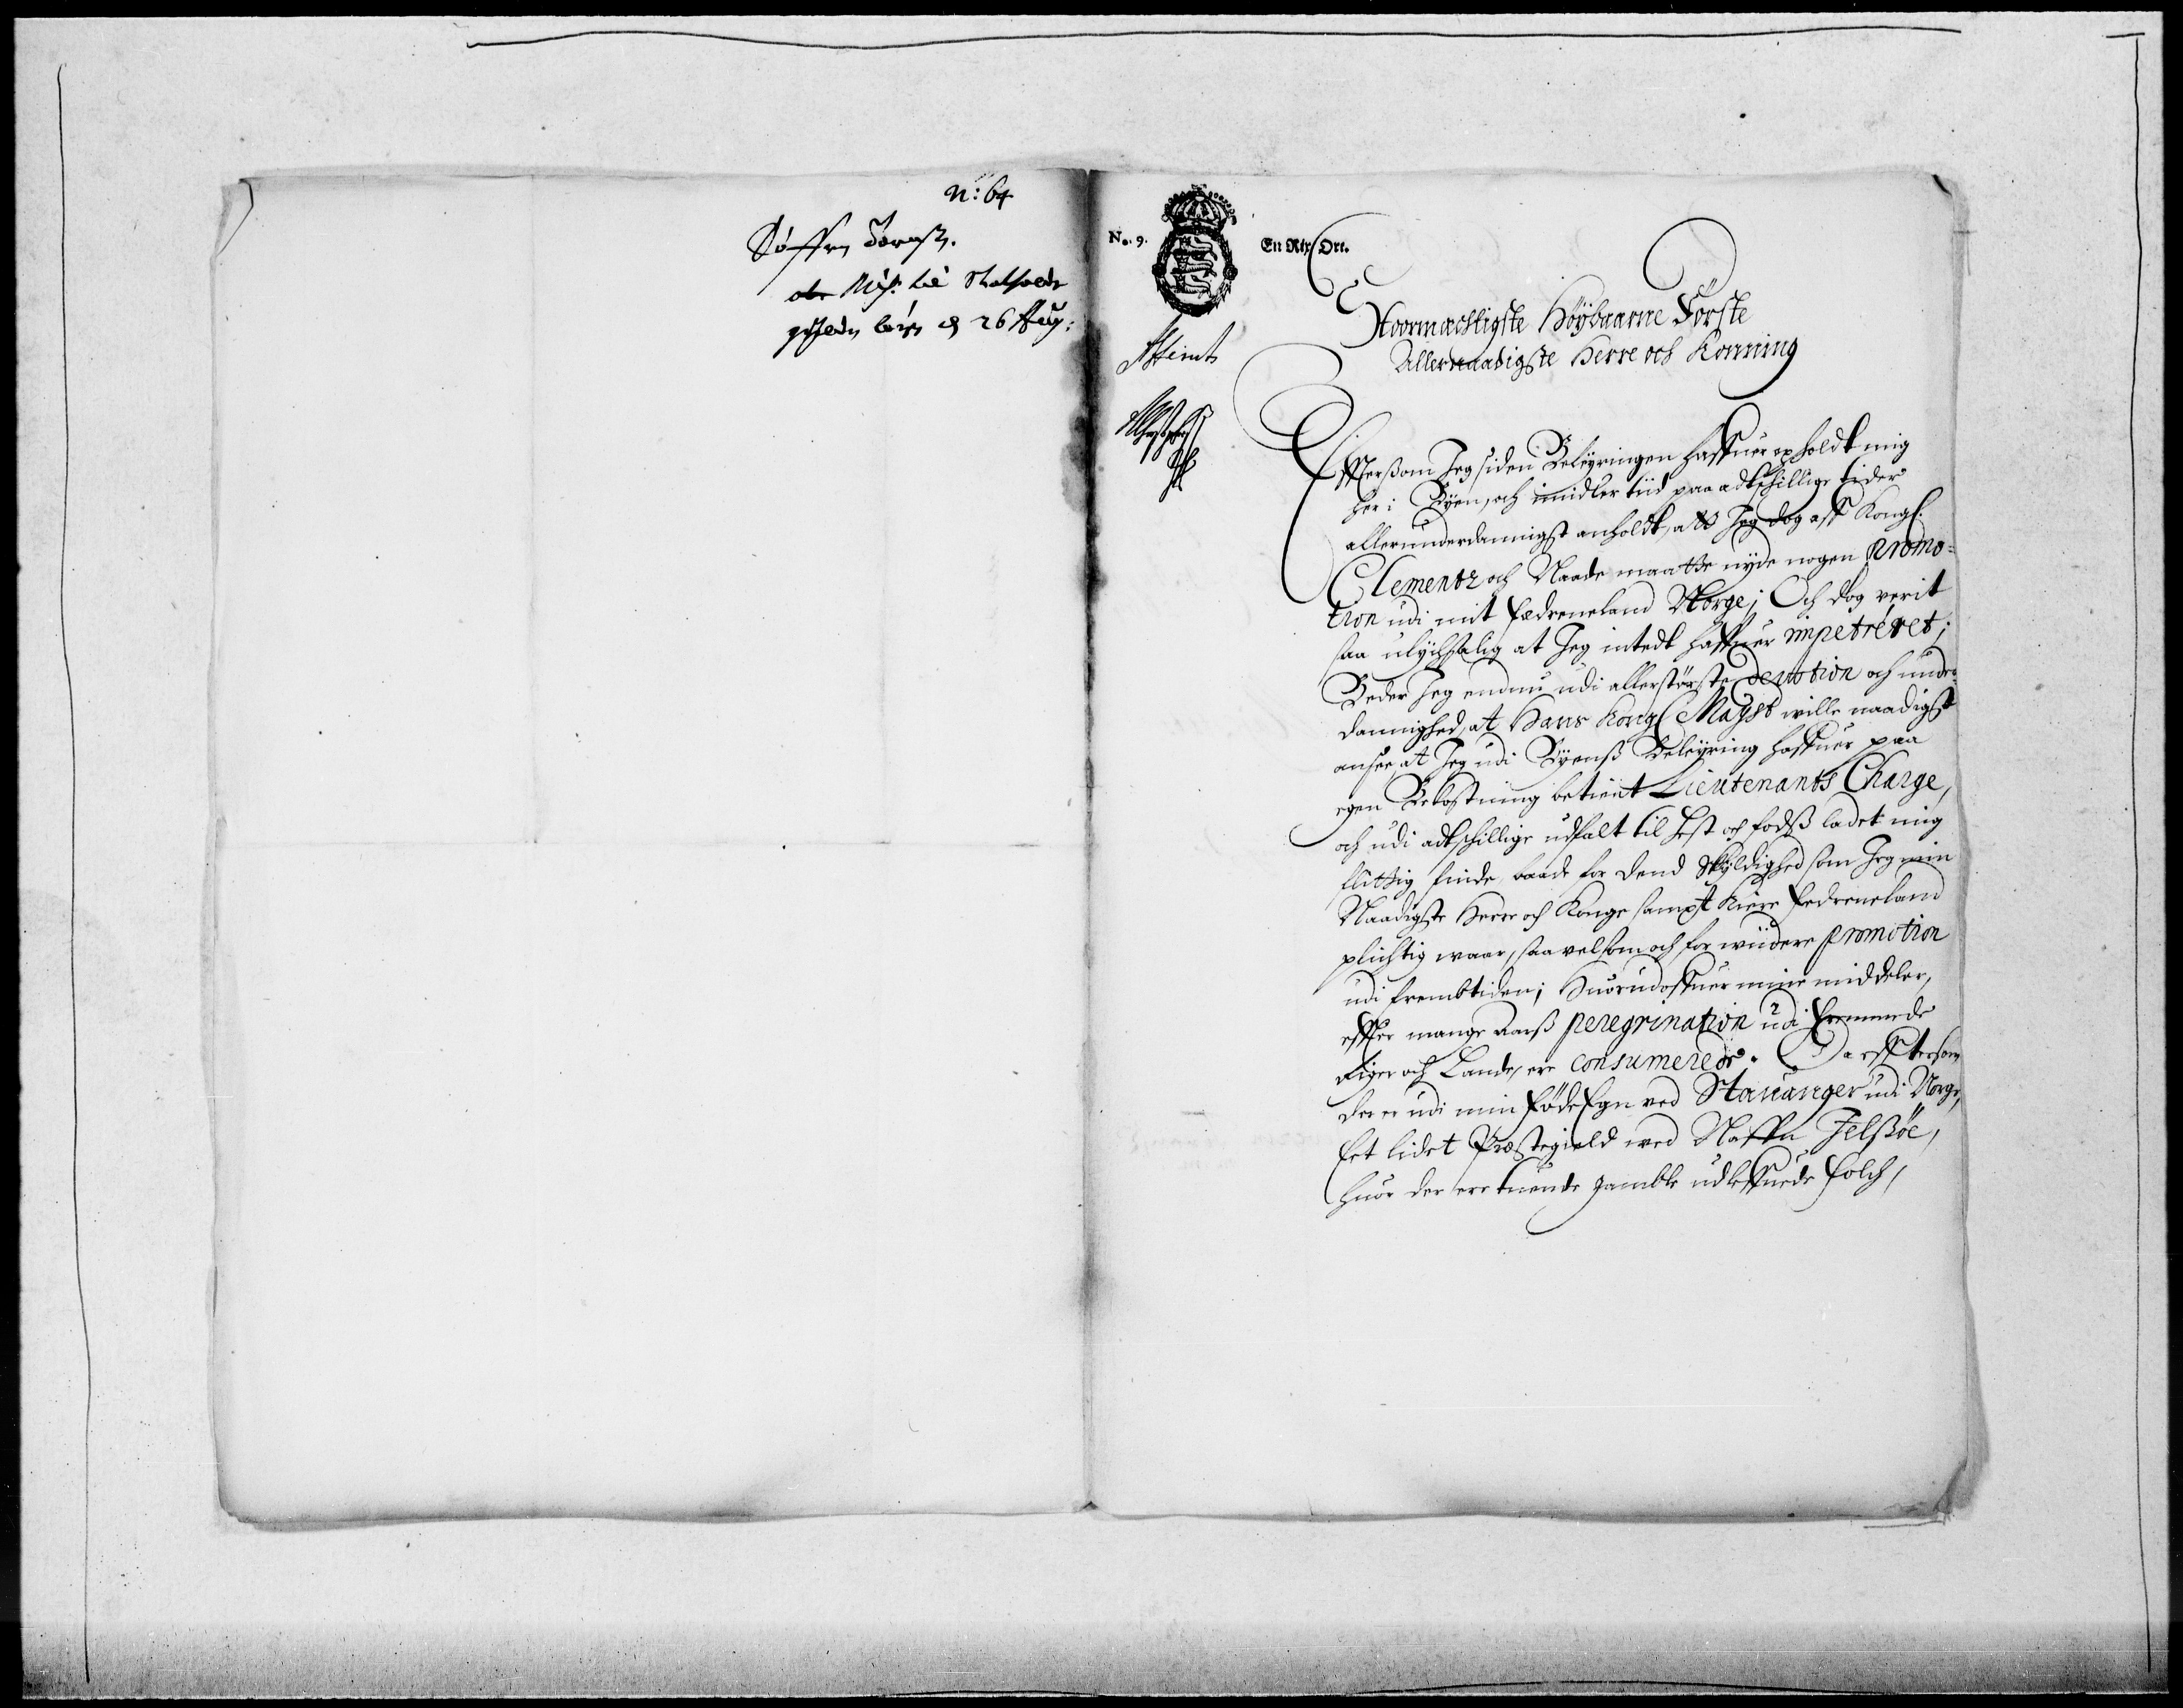 N: 64
Søffren
Stathold
26 Aug:
No. 9.
En Rix Ort.
Stoormæchtigste Höÿbaarne Förste
Allernaadigste Herre och Konning
Effterßom Jeg siden Beleÿringen haffuer opholdt mig
her i Bÿen, och imidler tiid paa adtschillige tider
allerunderdannigst anholdt, at Jeg dog aff Kongl.
Clementz och Naade maatte nyde nogen Promo-
tion udi mit Fædreneland Norge; Och dog verit
saa ulychsalig at Jeg intedt haffuer impetréret;
Beder Jeg endnu udi allerstörste Devotion och under-
dannighed, at Hans Kongl Mayst wille naadigst
ansee, at Jeg udi Bÿenß Beleÿring haffuer paa
egen Bekostning betient Lieutenants Charge,
och udi adtschillige udfalt til Hest och fodß ladet mig
flittig finde, baade for dend Skyldighed som Jeg min
Naadigste Herre och Konge sampt kiere Fedreneland
plichtig waar, saavelsom och for wiidere promotion
udi frembtiden; Huorudoffuer mine middeler,
effter mange Aarß peregrination udi fremmede
Riger och Lande, ere consumerede. Da efftersom
der er udi min FødeEgn ved Stauanger udi Norge,
Eet lidet Præstegield ved Naffn Jelßöe,
huor der ere tuende gamble udleffuede folch,